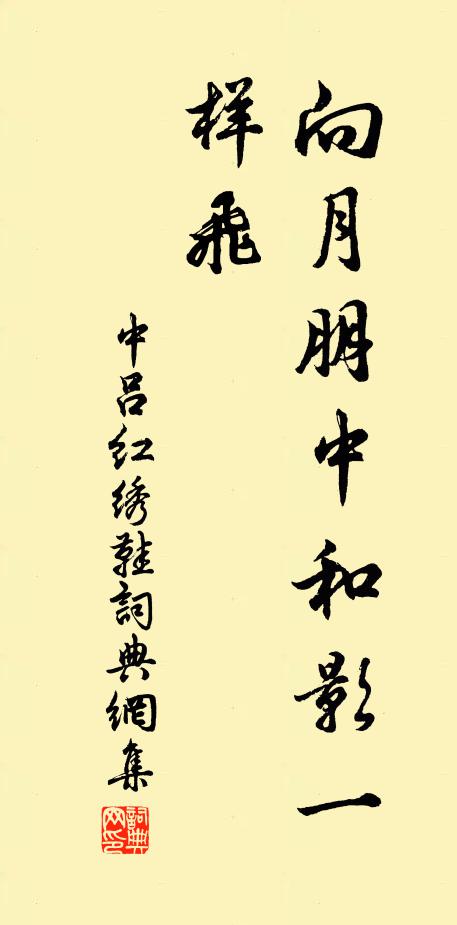 向月朋中和影一
样飛
中吕红绣鞋詞典網集
詞典网印